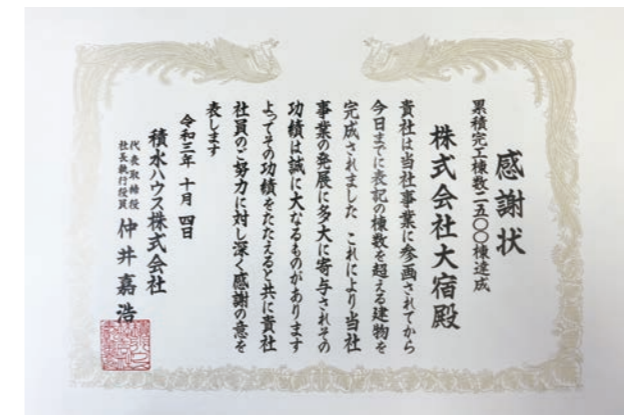 感謝状
累積完工棟数二五〇〇棟達成
株式会社大宿殿
貴社は当社事業に参画されてから
今日までに表記の棟数を超える建物を
完成されました これにより当社
事業の発展に多大に寄与されその
功績は誠に大なるものがあります
よってその功績をたたえると共に貴社
社員のご努力に対し深く感謝の意を
表します
令和三年 十月 四日
積水ハウス株式会社
代表取締役
社長執行役員 仲井嘉浩